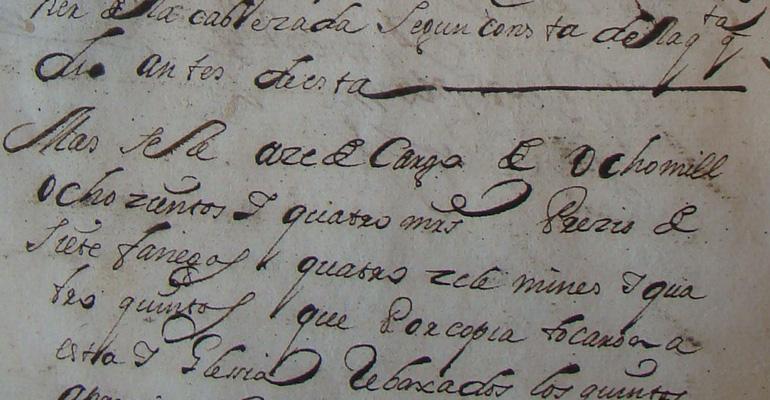 en la cavezada Segun consta de la qta q
dio antes desta
Mas se le aze Cargo de Ochomill
ochozientos I quatro mrs Prezio de
siete fanegas quatro zelemines I qua
tro quintos que Por copia tocaron a
esta Iglesia Rebaxados los quintos